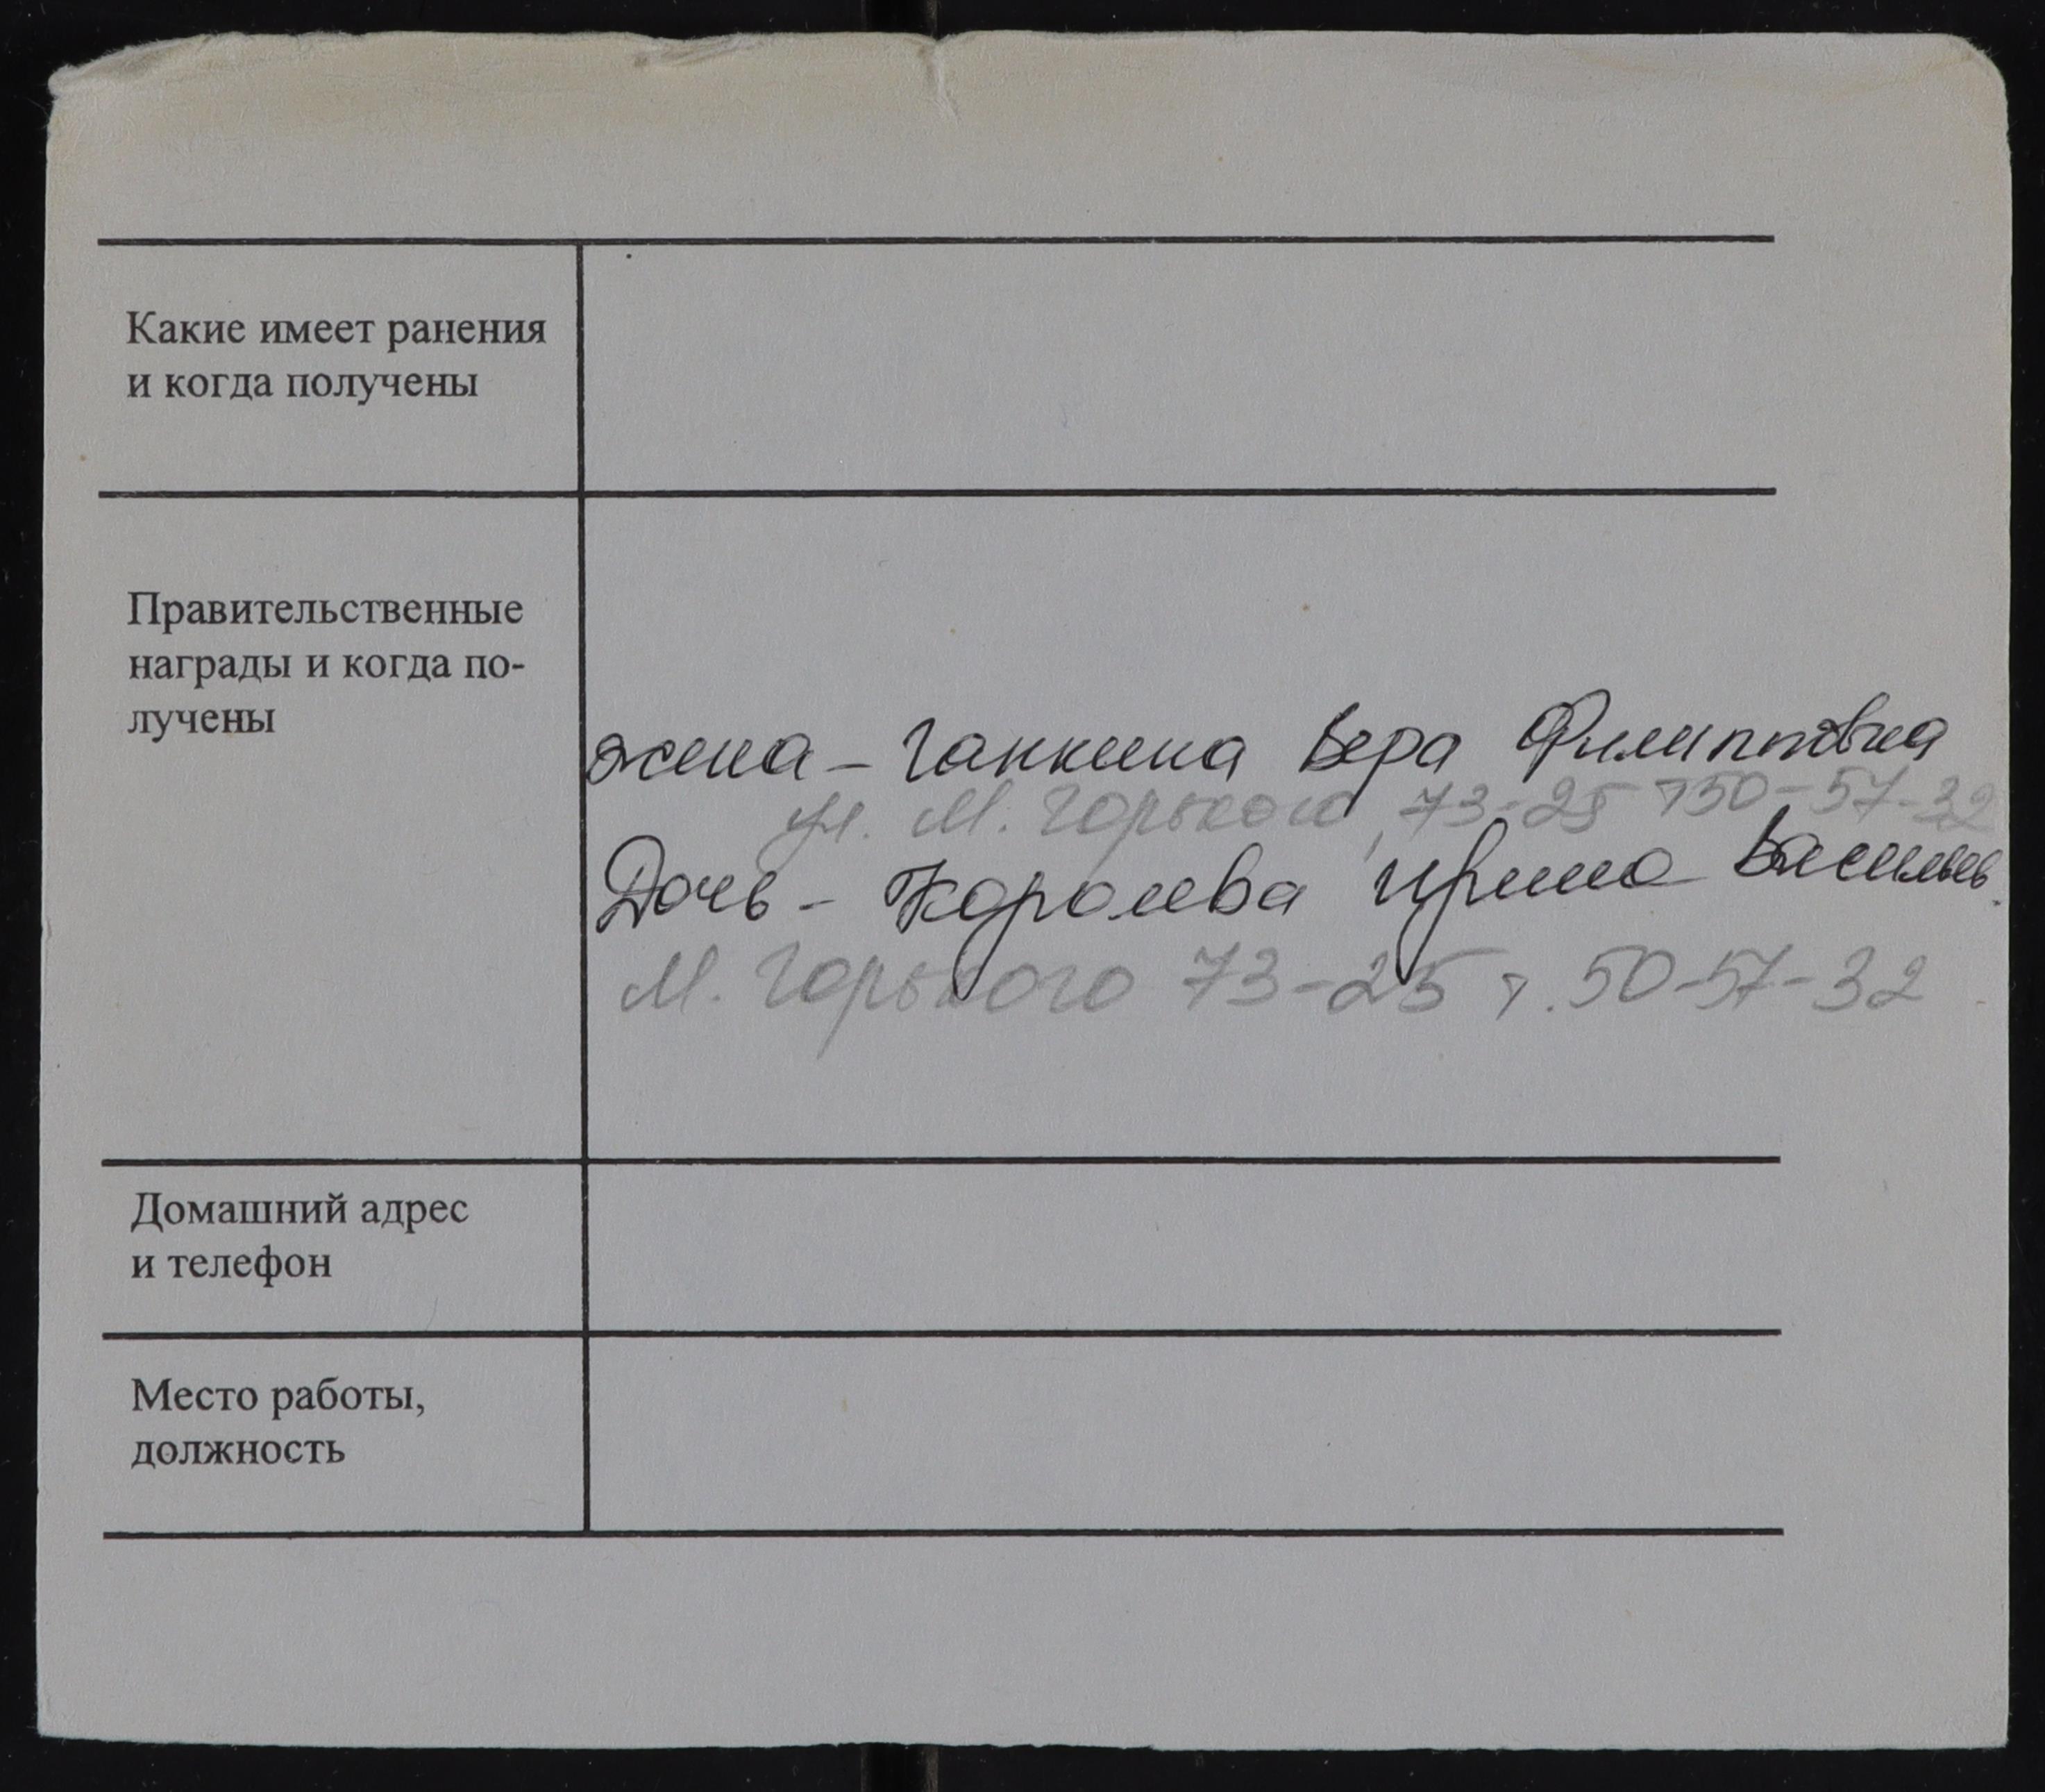 Какие имеет ранения
и когда получены
Правительственные
награды и когда по-
лучены
жена - Ганкина Вера Филипповна
ул. М. Горького, 73-25 т 50-57-32
Дочь - Королева Ирина Васильев.
М. Горького 73-25 т. 50-57-32
Домашний адрес
и телефон
Место работы,
должность